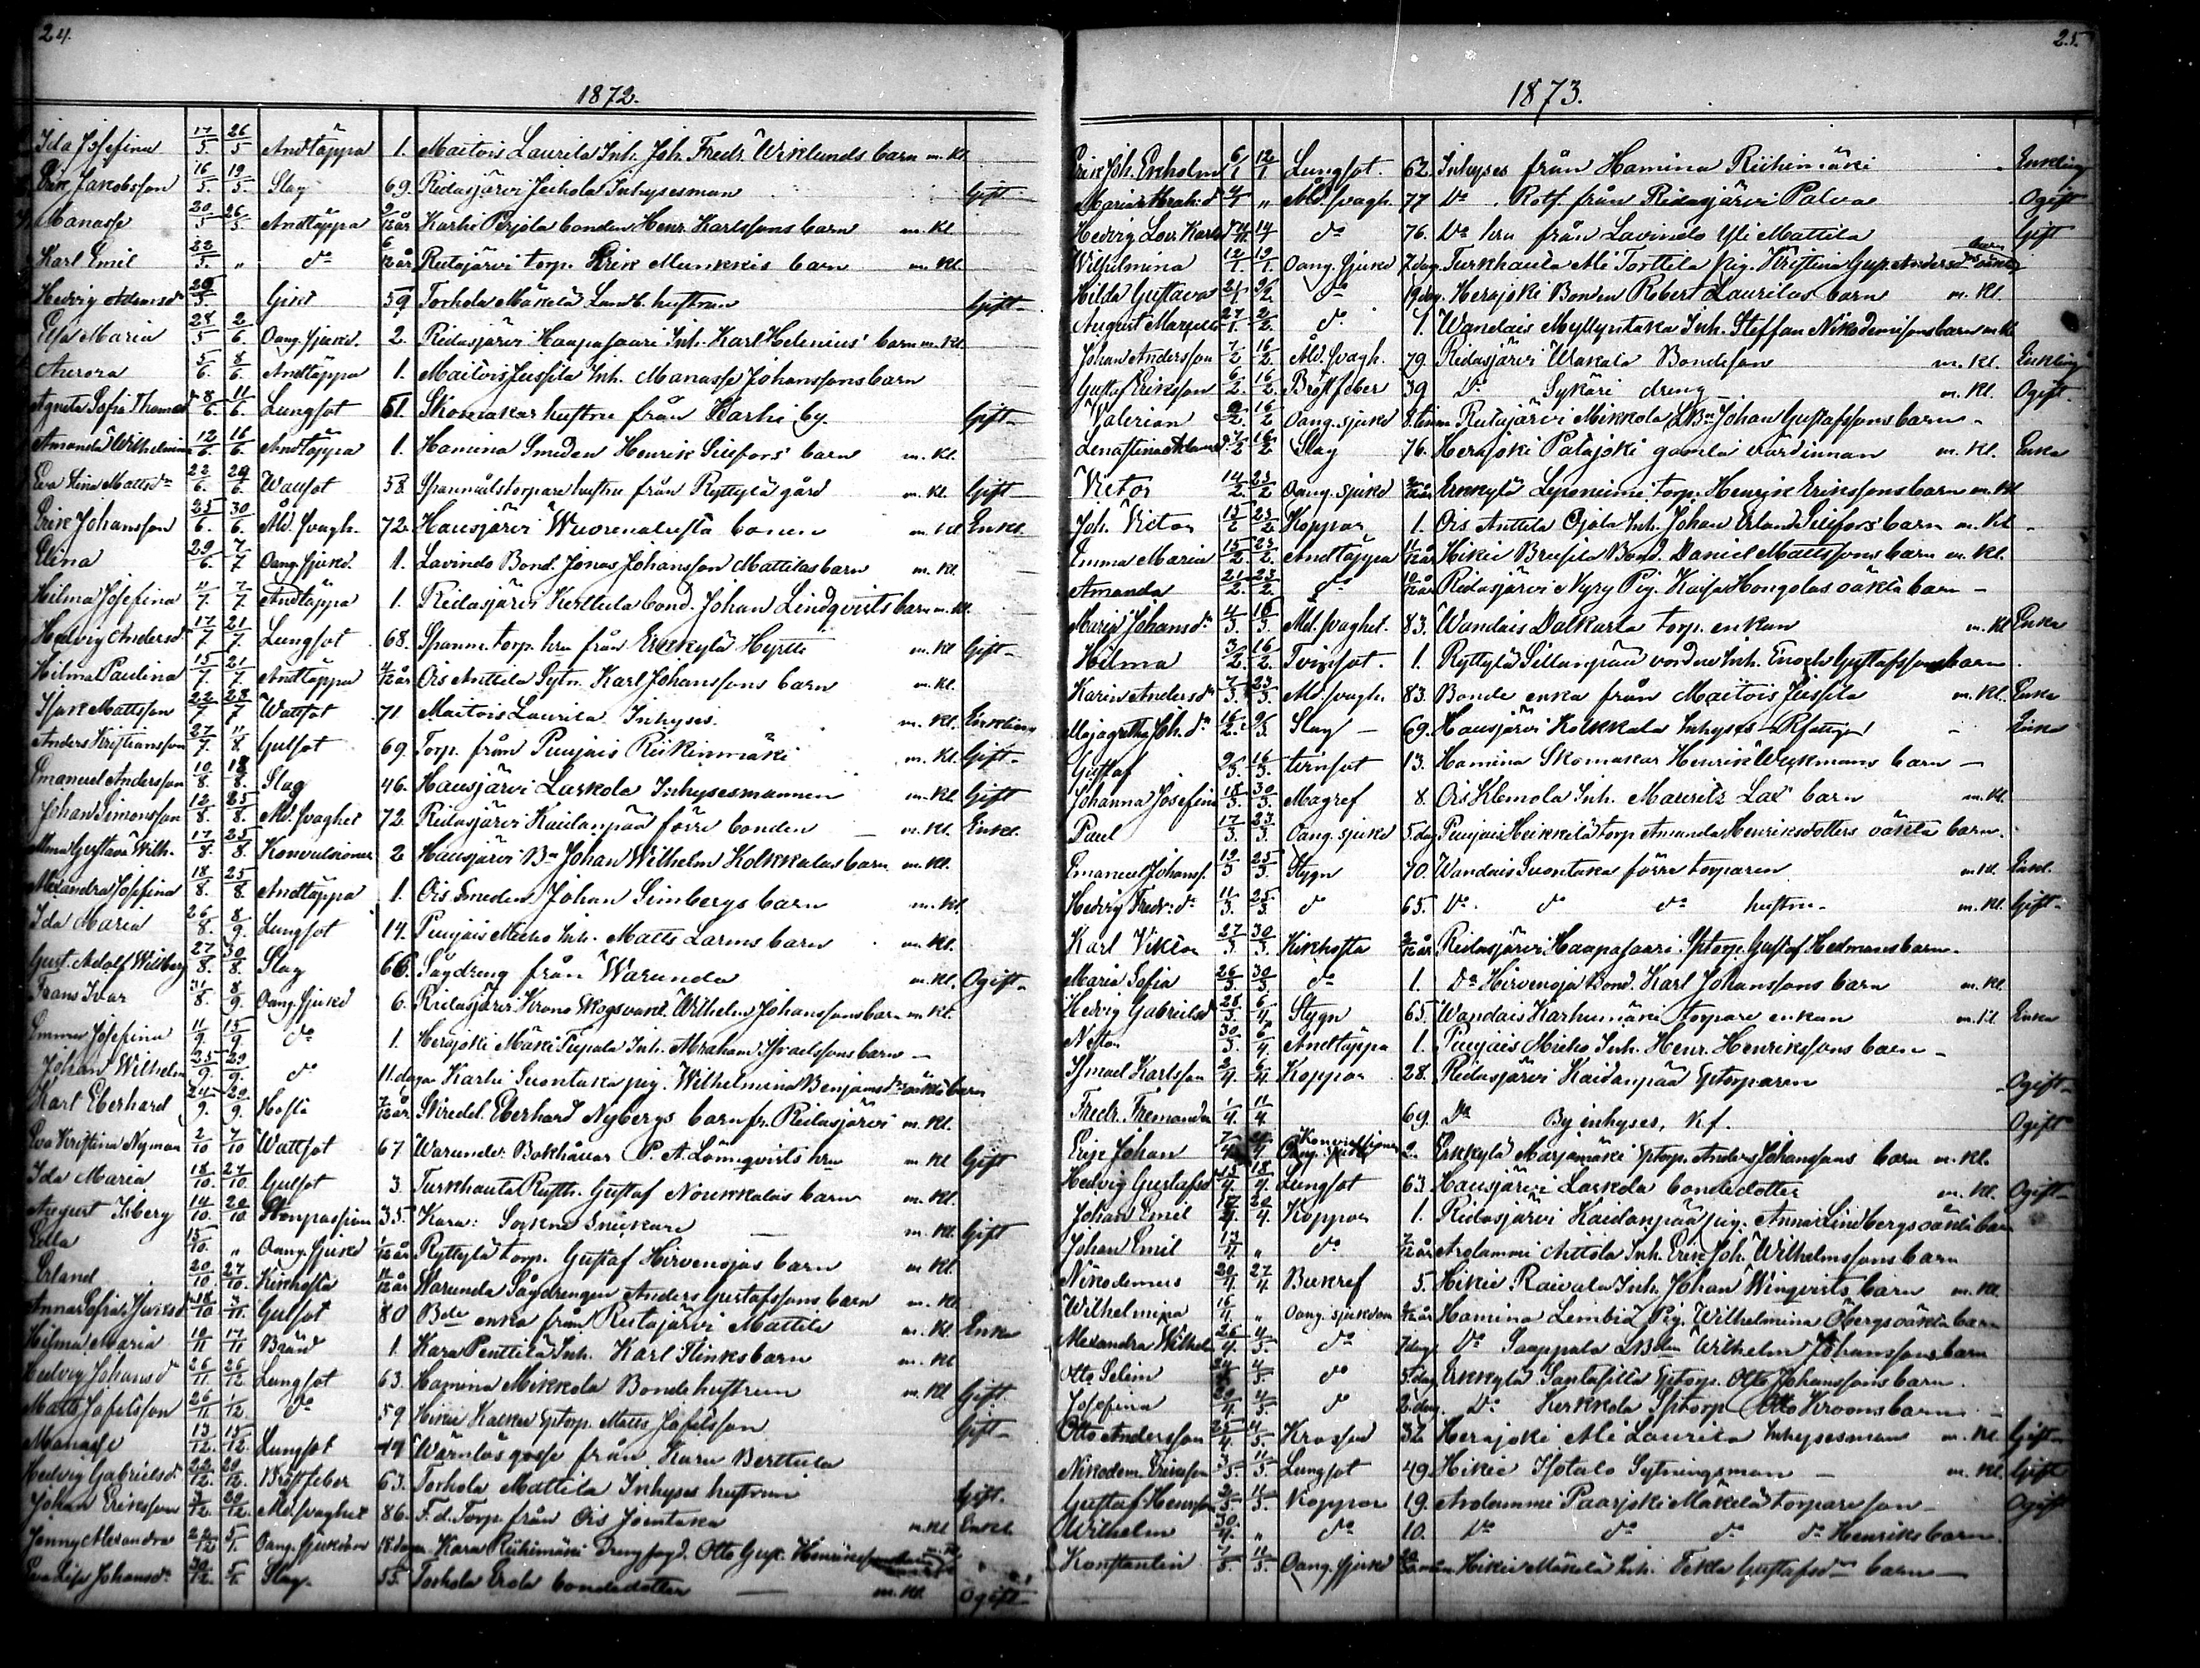 24.
1872.
Ida Josefina 17/5. 26/5 Andtäppa 1. Maitois Laurila Inh. Joh. Fredr. Wiklunds barn m. kl.
Erik Jakobsson 16/5. 19/5. Slag 69. Ridasjärvi Inhysesman Gift
Manasse 20/5 26/5. Andtäppa 9/12 år Karhi Perjola bonden Henr. Karlssons barn m. kl.
Karl Emil 22/5. " do 6/12 år Ridasjärvi torp. Erik Munkkis barn m. kl.
Hedvig Adamsdr 29/5. Gikt 59. Torhola Mäkelä Landb. hustrun Gift
Elsa Maria 28/5 2/6. Oang. sjukd. 2. Ridasjärvi Haapasaari Inh. Karl Helenius' barn m. kl.
Aurora 5/6. 8/6. Andtäppa 1. Maitois Jussila Inh. Manasse Johanssons barn
Agneta Sofia Thomasdr 8/6. 11/6. Lungsot 51. Skomakar hustru från Karhi by. Gift
Amanda Wilhelmina 12/6. 16/6. Andtäppa 1. Hamina Smeden Henrik Silfors' barn m. kl.
Eva Stina Mattsdr 22/6. 29/6. Wattsot 58. Spannmålstorpare hustru från Ryttylä gård m. kl. Gift
Erik Johansson 25/6. 30/6. Åld. svagh. 72. Hausjärvi bonen m. kl. Enkl.
Elina 29/6. 7/7 Oang. sjukd. 1. Lavinto Bond. Jonas Johansson Mattilas barn m. kl.
Hilma Josefina 4/7. 7/7. Andtäppa 1. Ridasjärvi Kerttula bond. Johan Lindqvists barn m. kl.
Hedvig Andersdr 17/7 21/7. Lungsot 68. Spannm. torp. hru från Erkkylä Hyrtti m. kl. Gift
Hilma Paulina 15/7. 21/7. Andtäppa 4/12 år Ois Anttila Sytn. Karl Johanssons barn m. kl.
Isak Mattsson 22/7 28/7 Wattsot 71. Maitois Laurila Inhyses. m. kl. Enkling
Anders Kristiansson 27/7. 11/8. Gulsot 69. Torp. från Punjais Riikinmäki m. kl. Gift
Emanuel Andersson 10/8. 18/8. Slag 46. Hausjärvi Laskola Inhysesmannen m. kl. Gift
Johan Simonsson 12/8. 25/8. Åld. svaghet 72. Ridasjärvi Kaidanpää förre bonden m. kl. Enkl.
Alma Gustava Wilh. 17/8. 25/8. Konvulsioner 2 Hausjärvi Bn Johan Wilhelm Kolkkalas barn m. kl.
Alexandra Josefina 18/8. 25/8. Andtäppa 1. Ois Smeden Johan Simbergs barn m. kl.
Ida Maria 26/8. 8/9. Lungsot 14. Punjais Mieho Inh. Matts Larms barn m. kl.
Gust. Adolf Wilberg 27/8. 30/8. Slag 66. Sågdreng från Warunda m. kl. Ogift
Frans Ivar 31/8. 8/9. Oang. sjukd 6. Ridasjärvi Krono Skogsvakt. Wilhelm Johanssons barn m. kl.
Emma Josefina 11/9. 15/9. do 1. Herajoki Mäki Tupala Inh. Abraham Israelssons barn
Johan Wilhelm 25/9. 29/9. do 11 dagar Karhi Suontaka pig. Wilhelmina Benjamsdrs oäkta barn
Karl Eberhard 24/9. 29/9. Hosta 7/12 år Skredd. Eberhard Nybergs barn fr. Ridasjärvi m. kl.
Eva Kristina Nyman 2/10 7/10 Wattsot 67. Warunda: Bokhållar P. A. Lönnqvists hru m. kl Gift
Ida Maria 18/10. 27/10. Gulsot 3. Turkhauta Rusth. Gustaf Noukkalas barn m. kl.
August Isberg 14/10. 20/10 35. Kara: Sockne Snickare m. kl. Gift
Ella 15/10. " Oang. sjukd 1/12 år Ryttylä torp. Gustaf Hirvensjas barn m. kl.
Erland 20/10 27/10. Kikhosta 11/12 år Warunda Sågdrengen Anders Gustafssons barn m. kl.
Anna Sofia 18/10 3/11. Gulsot 80 Bde enka från Ridasjärvi Mattila m. kl. Enka
Hilma Maria 10/11 17/11 Bränd 1. Kara Penttilä Inh. Karl Flinks barn m. kl
Hedvig Johansdr 26/11 26/12 Lungsot 63. Hamina Mikkola Bondehustrun m. kl Gift
Matts Jafetsson 26/11 1/12. do 59 Hikie Kaeku Sptorp. Matts Jafetsson Gift
Manasse 13/12. 15/12. Lungsot 14 Wärnlös gosse från Karu Berttula
Hedvig Gabrielsdr 22/12. 29/12. Bröstfeber 63. Torhola Mattila Inhyses hustrun Gift.
Johan Eriksson 3/12. 29/12. Åld. svaghet 86. F. d. Torp. från Ois Jointaka m. kl Enkl.
Jenny Alexandra 22/12 5/1. Oang. sjukdom 18 dagar Kara Riihimäki Otto Gust. Henriksson
Eva Lisa Johansdr 30/12. 5/1. Slag. 55. Torhola Erola bondedotter m. kl. Ogift
25.
1873.
Erik Joh. Ekholm 6/1 12/1. Lungsot. 62. Inhyses från Hamina Riihimäki Enkling
Maria Abrah.dr 4/1 " Åld. svagh. 77 Do Rotf. från Ridasjärvi Palva Ogift
Hedvig Lov. Karlsdr 14/1 do 76. Do hru från Lavinto Yli Mattila Gift
Wilhelmina 12/1. 19/1. Oang. sjukd 7 dag. Turkhauta Ali Torttila Pig. Kristina Gust. Andersdrs oäkta barn
Hilda Gustava 21/1. 2/2. do 19 dag. Herajoki Bonden Robert Laurilas barn m. kl.
August Marzellus 27/1. 2/2. do 1. Wandais Myllyntaka Inh. Steffan Nikodemussons barn m. kl
Johan Andersson 7/2 16/2. Åld. svagh. 79. Ridasjärvi Ylakala Bondeson m. kl. Enkling
Gustaf Eriksson 6/2. 16/2. Bröstfeber 39 Do Sykäri dreng m. kl. Ogift.
Valerian 9/2. 16/2 Oang. sjukd 8 timm Ridasjärvi Mikkola LBn Johan Gustafssons barn
Lenastina Adamsdr 7/2 16/2 Slag 76. Herajoki Patajoki gamla värdinnan m. kl. Enka
Victor 14/2. 23/2 Oang. sjukd 2/12 år Erkkylä Leponiemi torp. Henrik Erikssons barn m. kl
Joh. Victor 15/2 23/2 Koppor 1. Ois Anttila Ojala Inh. Johan Erland Silfors' barn m. kl
Emma Maria 15/2. 23/2. Andtäppa 11/12 år Hikie Bond. Daniel Mattssons barn m. kl.
Amanda 21/2. 23/2. do 10/12 år Ridasjärvi Nyry Pig. Kaisa Hongolas oäkta barn
Maria Johansdr 4/3. 16/3. Åld. svaghet. 83. Wandais Dalkarla torp. enkan m. kl Enka
Hilma 3/2. 16/2. Tvinsot. 1. Ryttylä Sillanpää Inh. Enock Gustafssons barn
Karin Andersdr 7/3. 23/3. Åld. svagh. 83. Bonde enka från Maitois Jussila m. kl. Enka
Majagretha Joh.dr 16/2. 9/3. Slag 69. Hausjärvi Kolkkala Inhyses Rfattig Enka
Gustaf 9/3. 16/3. tvinsot 13. Hamina Skomakar Henrik Wickmans barn
Johanna Josefina 18/3. 30/3. Magref 8. Ois Klemola Inh. Mauritz Lax' barn m. kl.
Paul 17/3. 23/3. Oang. sjukd 5 dag. Punjais Heikkilä torp. Amanda Henriksdotters oäkta barn.
Emanuel Johanss. 19/3 25/3. Stygn 70. Wandais Suontaka förre torparen m. kl. Enkl.
Hedvig Fredr:dr 11/3. 25/3. do 65. Do do do hustru m. kl. Gift
Karl Viktor 27/3 30/3. Kikhosta 2/12 år Ridasjärvi Haapasaari Sptorp. Gustaf Hedmans barn
Maria Sofia 26/3. 30/3. do 1. Do Hirvenoja Bond. Karl Johanssons barn m. kl.
Hedvig Gabrielsdr 28/3 6/4. Stygn 65. Wandais Karhumäki torpare enkan m. kl. Enka
Nestor 30/3. 6/4. Andtäppa 1. Punjais Mieho Inh. Henr. Henrikssons barn
Ismael Karlsson 2/4. 6/4. Koppor 28. Ridasjärvi Kaidanpää Sptorparen Ogift
Fredr. Fremander 1/4. 11/4. 69. Do By inhyses, k. f. Ogift
Erik Johan Konvulsioner 2. Erkkylä Marjamäki Sptorp. Anders Johanssons barn m. kl.
Hedvig Gustafsdr 15/4. 18/4. Lungsot 63. Hausjärvi Laskola bondedotter m. kl. Ogift
Johan Emil 17/4. 20/4. Koppor 1. Ridasjärvi Kaidanpää pig. Anna Lindbergs oäkta barn
Johan Emil 13/4. " do 7/12 år Arolammi Aittola Inh. Erik Joh. Wilhelmssons barn
Nikodemus 20/4. 27/4. Bukref 5. Hikie Raivala Inh. Johan Winqvists barn m. kl.
Wilhelmina 16/4. " Oang. sjukdom Hamina Lembid Pig. Wilhelmina Öbergs oäkta barn
Alexandra Wilhel. 26/4. 4/5. do 7 dag. Do Saappala LBden Wilhelm Johanssons barn
Otto Selim 24/4. 4/5. do 5 dag. Erkkylä Santasilta Sptorp. Otto Johanssons barn.
Josefina 29/4. 4/5. do 2 dag. Do Kerkkola Sptorp Otto Kroons barn
Otto Andersson 25/4. 4/5. Krossad 32. Herajoki Ali Laurila Inhysesman m. kl. Gift
Nikodem. Ericsson 3/5. 11/5. Lungsot 49. Hikie Isotalo Sytningsman m. kl. Gift
Gustaf Henrsson 2/5. 11/5. Koppor 19. Arolammi Paarjoki Mäkelä torpare son Ogift
Wilhelm 30/4. " do 10. Do do do do Henriks barn.
Konstantin 7/5. 11/5. Oang. sjukd Hikie Mäkelä Inh. Tekla Gustafsdrs barn